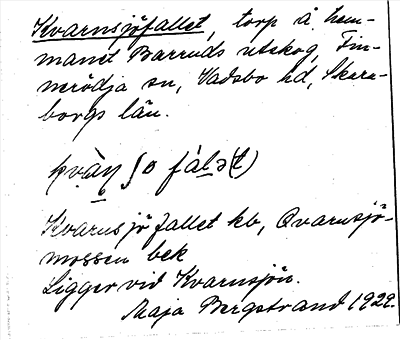 Kvarnsjöfallet, torp å hem-
manet Barruds utskog, Fin-
nerödja sn, Vadsbo hd, Skara-
borgs län.
kvàn̥ ʃø fál̲ə(t)
Kvarnsjöfallet kb, Qvarnsjö-
mossen bek
Ligger vid Kvarnsjön.
Maja Bergstrand 1929.